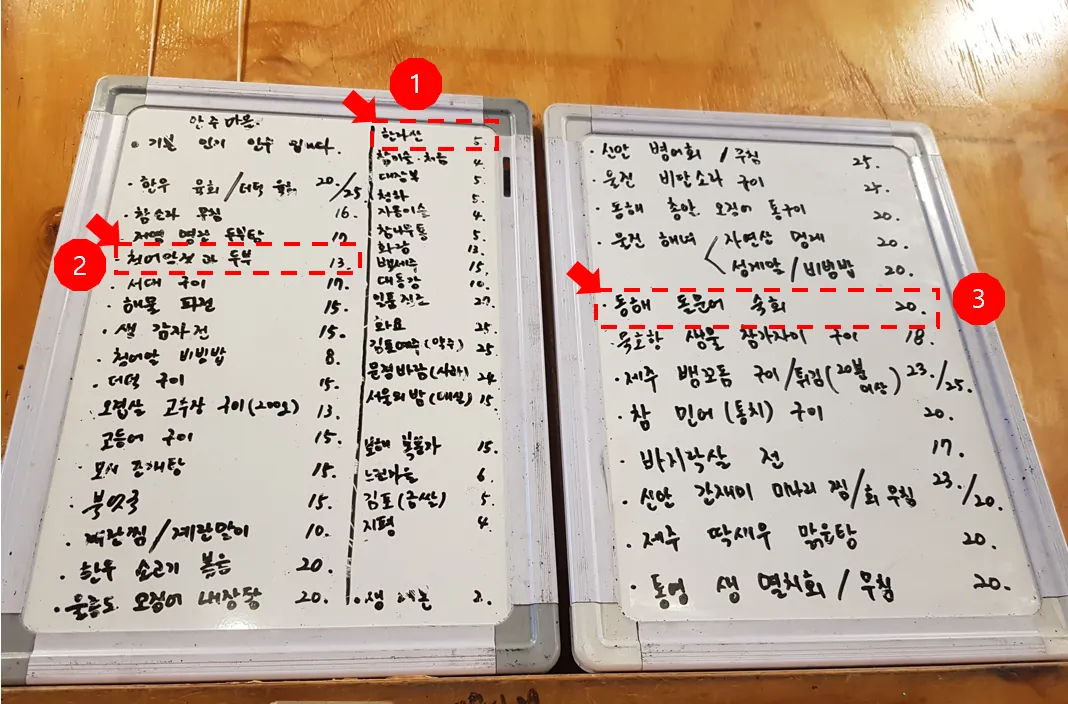 안주마을.
기본 인기 안주 입니다.
· 한우 육회/더덕 육회 20./25
· 참소라 무침 16.
· 저염 명란 두부탕 17
2
· 청어알젓과 두부 13.
· 서대 구이 17.
· 해물 파전 15.
· 생 감자전 15.
· 청어알 비빔밥 8.
· 더덕 구이 15.
오겹살 고추장 구이(200g) 13.
고등어 구이 15.
· 모시 조개탕 15.
· 북엇국 15.
· 계란찜/계란말이 10.
· 한우 소고기 볶음 20.
· 울릉도 오징어 내장탕 20.
1
한라산 5.
참이슬·처음 4
대장부 5.
청하 5.
자몽이슬 4.
참나무통 5.
화랑 13.
백세주 15.
대통장 10.
일품진로 27.
화요 25.
김포예주(약주) 25
문경바람(사과) 24
서울의밤(매실) 15
보해 복분자 15.
느린마을 6.
김포(금쌀) 5.
지평 4.
· 생 레몬 2.
· 신안 병어회/무침 25.
· 울진 비단소라 구이 25.
· 동해 총알 오징어 통구이 20.
· 울진 해녀 자연산 멍게 20.
성게알/비빔밥 20.
3
· 동해 돌문어 숙회 20.
· 묵호항 생물 참가자미 구이 18.
· 제주 뱅꼬돔 구이/튀김(20분 이상) 23./25.
· 참 민어(통치) 구이 20.
· 바지락살 전 17.
· 신안 간재미 미나리 찜/회무침 23./20.
· 제주 딱새우 맑은탕 20.
· 통영 생 멸치회/무침 20.